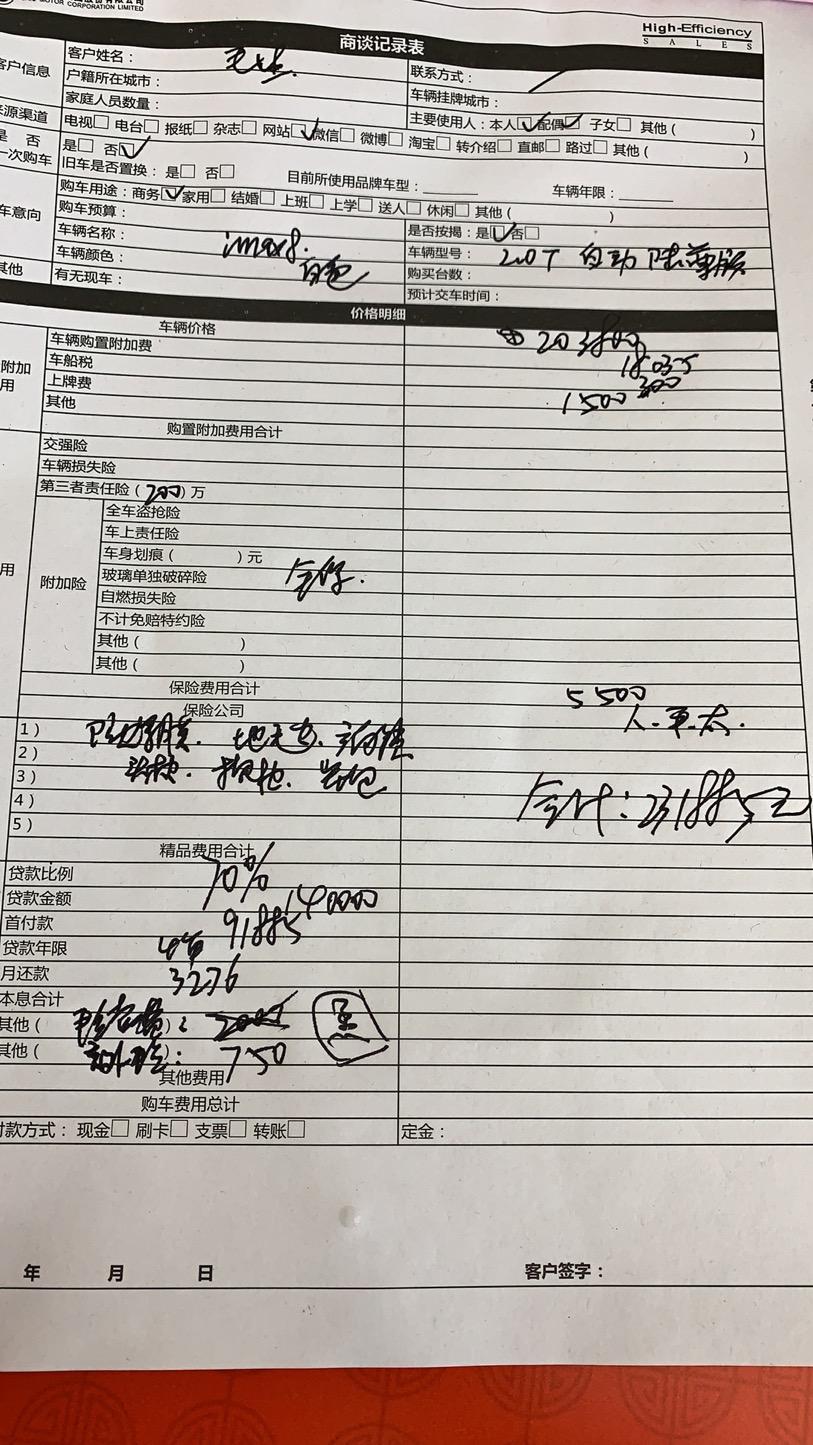 MOTOR CORPORATION LIMITED
High-Efficiency
SALES
商谈记录表
客户信息
客户姓名：
联系方式：
户籍所在城市：
车辆挂牌城市：
家庭人员数量：
主要使用人：本人☑配偶☑ 子女□ 其他（ ）
来源渠道
电视□ 电台□ 报纸□ 杂志□ 网站☑微信□ 微博□ 淘宝□ 转介绍□ 直邮□ 路过□ 其他（ ）
是 否
一次购车
是□ 否☑
旧车是否置换： 是□ 否□
目前所使用品牌车型：
车辆年限：
车意向
购车用途：商务☑家用□ 结婚□ 上班□ 上学□ 送人□ 休闲□ 其他（ ）
购车预算：
是否按揭：是☑否□
车辆名称： imax8.
车辆型号： 2.0T 自动 陆尊版
车辆颜色： 白色
购买台数：
其他
有无现车：
预计交车时间：
价格明细
车辆价格 203800
附加
用
车辆购置附加费 18035
车船税 300
上牌费 1500
其他
购置附加费用合计
交强险
车辆损失险
第三者责任险（200）万
用
附加险
全车盗抢险
车上责任险
车身划痕（ ）元
玻璃单独破碎险
全保.
自燃损失险
不计免赔特约险
其他（ ）
其他（ ）
保险费用合计 5500
保险公司 人.平.太.
1）
2）
3）
4）
5）
合计：231885元
精品费用合计
贷款比例 70%
贷款金额 140000
首付款 91885
贷款年限 4年
月还款 3276
本息合计
其他（ ）： 2000
其他（ ： 750
其他费用
购车费用总计
付款方式： 现金□ 刷卡□ 支票□ 转账□
定金：
年 月 日
客户签字：